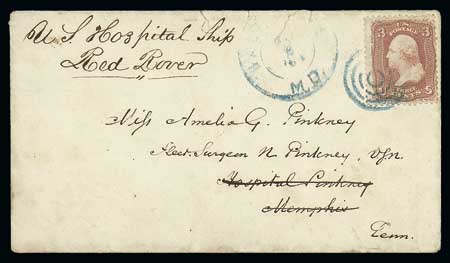 U S Hospital Ship
Red Rover
M.D.
3 U.S. 3
THREE
CENTS
Miss Amelia G. Pinkney
Fleet Surgeon N. Pinkney, USN.
Hospital Pinkney
Memphis
Tenn.